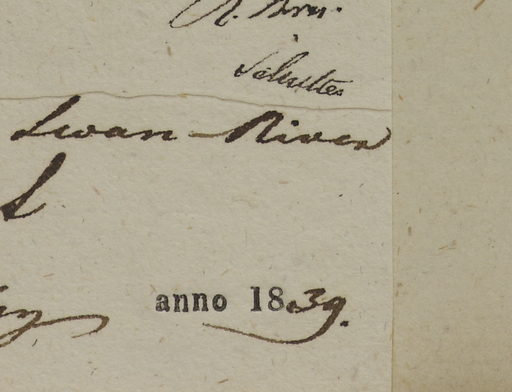 R. Br.
Schultes
Swan River
anno 1839.